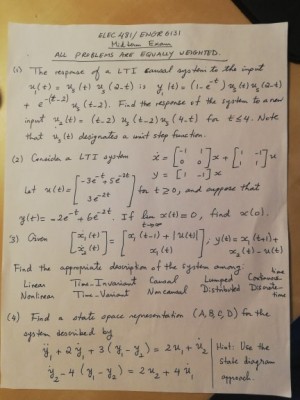 ELEC 481/ENGR 6131
Midterm Exam
ALL PROBLEMS ARE EQUALLY WEIGHTED.
(1) The response of a LTI causal system to the input
u(t) = u_s(t) u_s(2-t) is y(t) = (1-e^{-t}) u_s(t) u_s(2-t)
+ e^{-(t-2)} u_s(t-2). Find the response of the system to a new
input u_2(t) = (t-2) u_s(t-2) u_s(4-t) for t ≤ 4. Note
that u_s(t) designates a unit step function.
(2) Consider a LTI system ẋ = [-1 1; 0 0] x + [1 -1; 1 1] u
y = [1 -1] x
Let u(t) = [-3e^{-t}+5e^{-2t}; 3e^{-2t}] for t ≥ 0, and suppose that
y(t) = -2e^{-t} + 6e^{-2t}. If lim_{t→∞} x(t) = 0, find x(0).
(3) Given [ẋ_1(t); ẋ_2(t)] = [x_1(t-1) + |u(t)|; x_1(t)], y(t) = x_1(t+1) + x_2(t) - u(t)
Find the appropriate description of the system among:
Linear Time-Invariant Causal Lumped Continuous time
Nonlinear Time-Variant Noncausal Distributed Discrete-time
(4) Find a state space representation (A, B, C, D) for the
system described by
ÿ_1 + 2ẏ_1 + 3(y_1 - y_2) = 2u_1 + u̇_2
ẏ_2 - 4(y_1 - y_2) = 2u_2 + 4u̇_1
Hint: Use the
state diagram
approach.